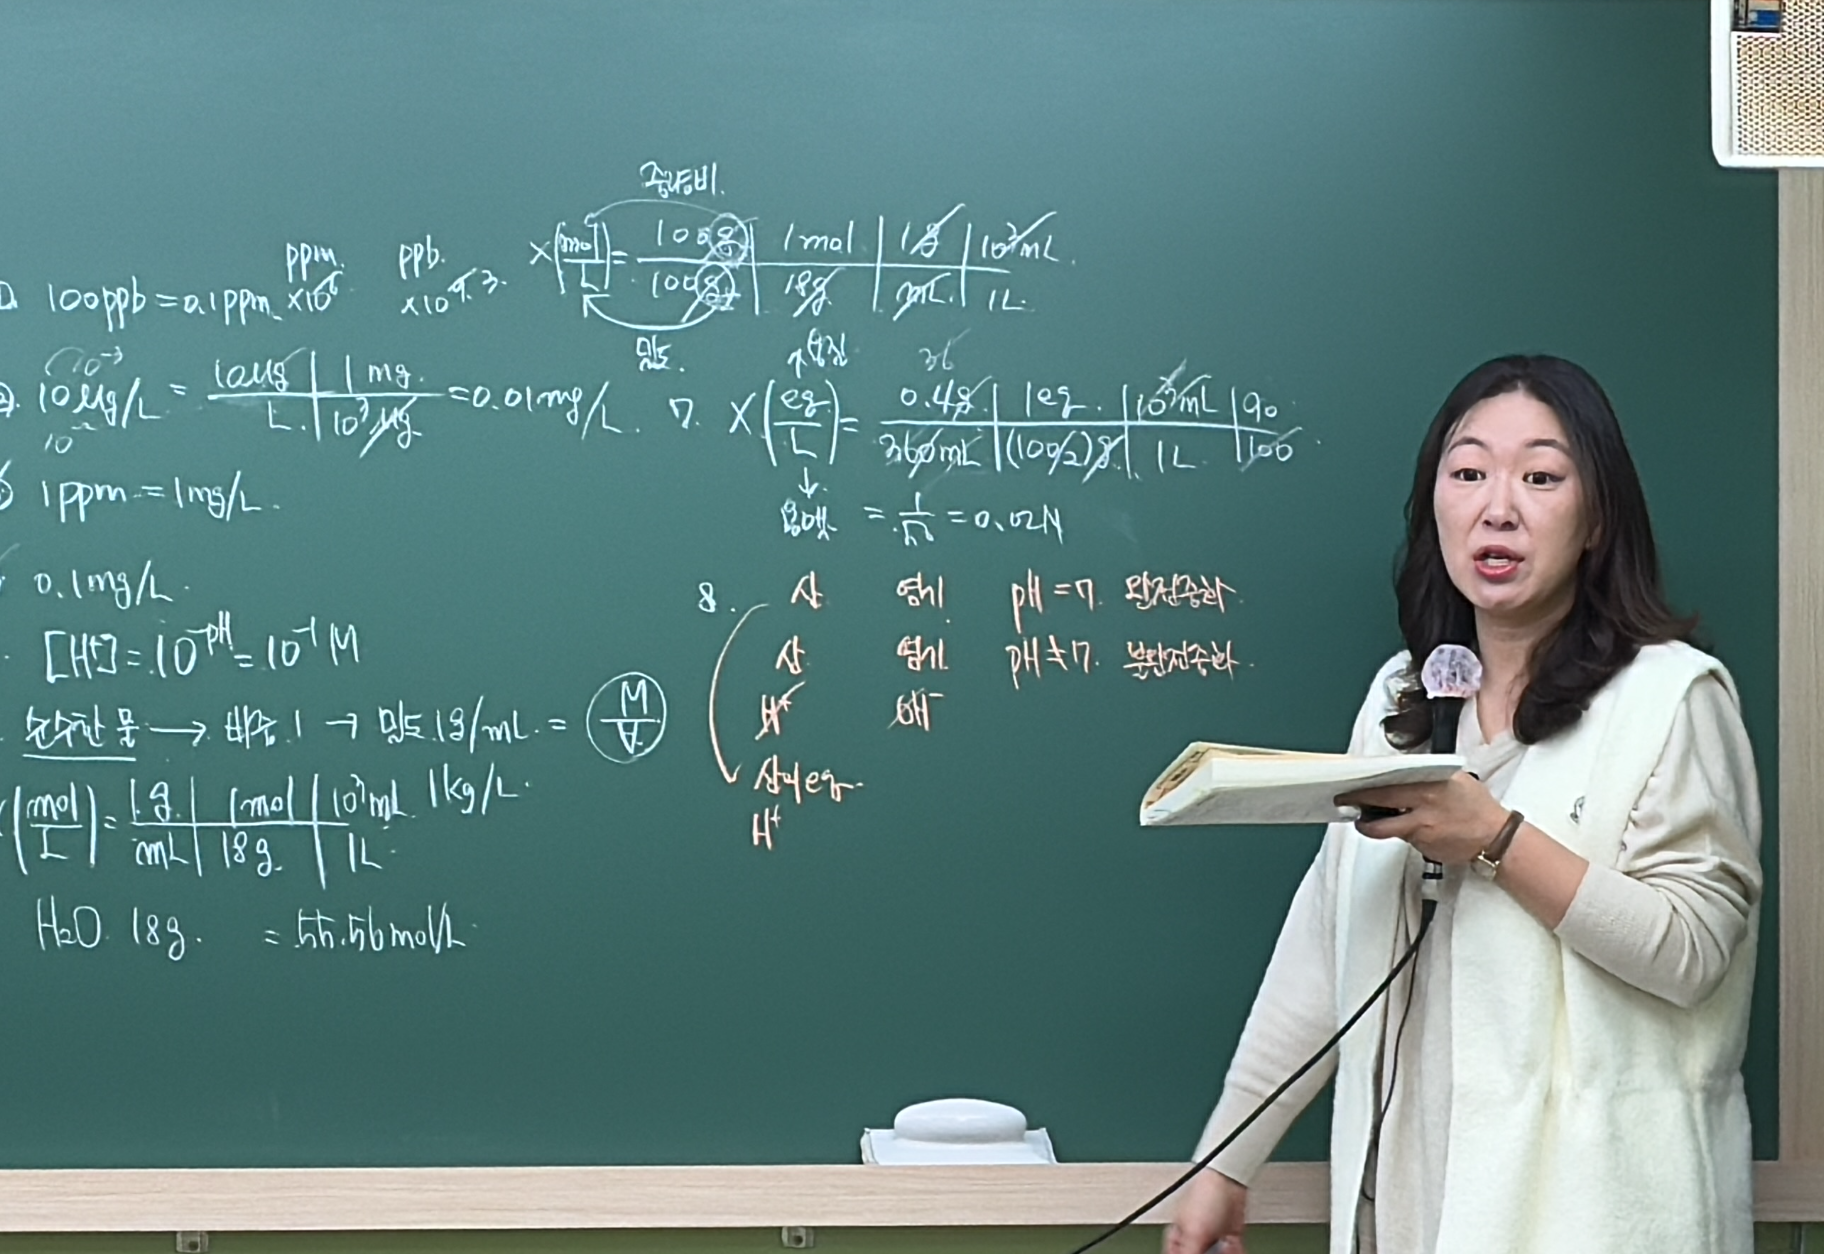 중량비.
X(mol/L) = 100g/100g | 1mol/18g | 1g/mL | 10³mL/1L
밀도.
ppm. ×10⁶ ppb. ×10⁹ 3.
100ppb = 0.1ppm
10⁻³
10μg/L = 10μg/L | 1mg/10³μg = 0.01mg/L.
1ppm = 1mg/L.
0.1mg/L.
[H⁺] = 10⁻ᵖᴴ = 10⁻¹ M
순수한 물 → 비중 1 → 밀도 1g/mL = M/V
(mol/L) = 1g/mL | 1mol/18g | 10³mL/1L 1kg/L.
H₂O 18g. = 55.56mol/L
용질 36
7. X(eg/L) = 0.4g/360mL | 1eg/(100/2)g | 10³mL/1L | 90/100
↓
용매 = 1/50 = 0.02N
8. 산 염기 pH = 7. 완전중화
산 염기 pH ≠ 7. 불완전중화
H⁺ OH⁻
산의 eg.
H⁺